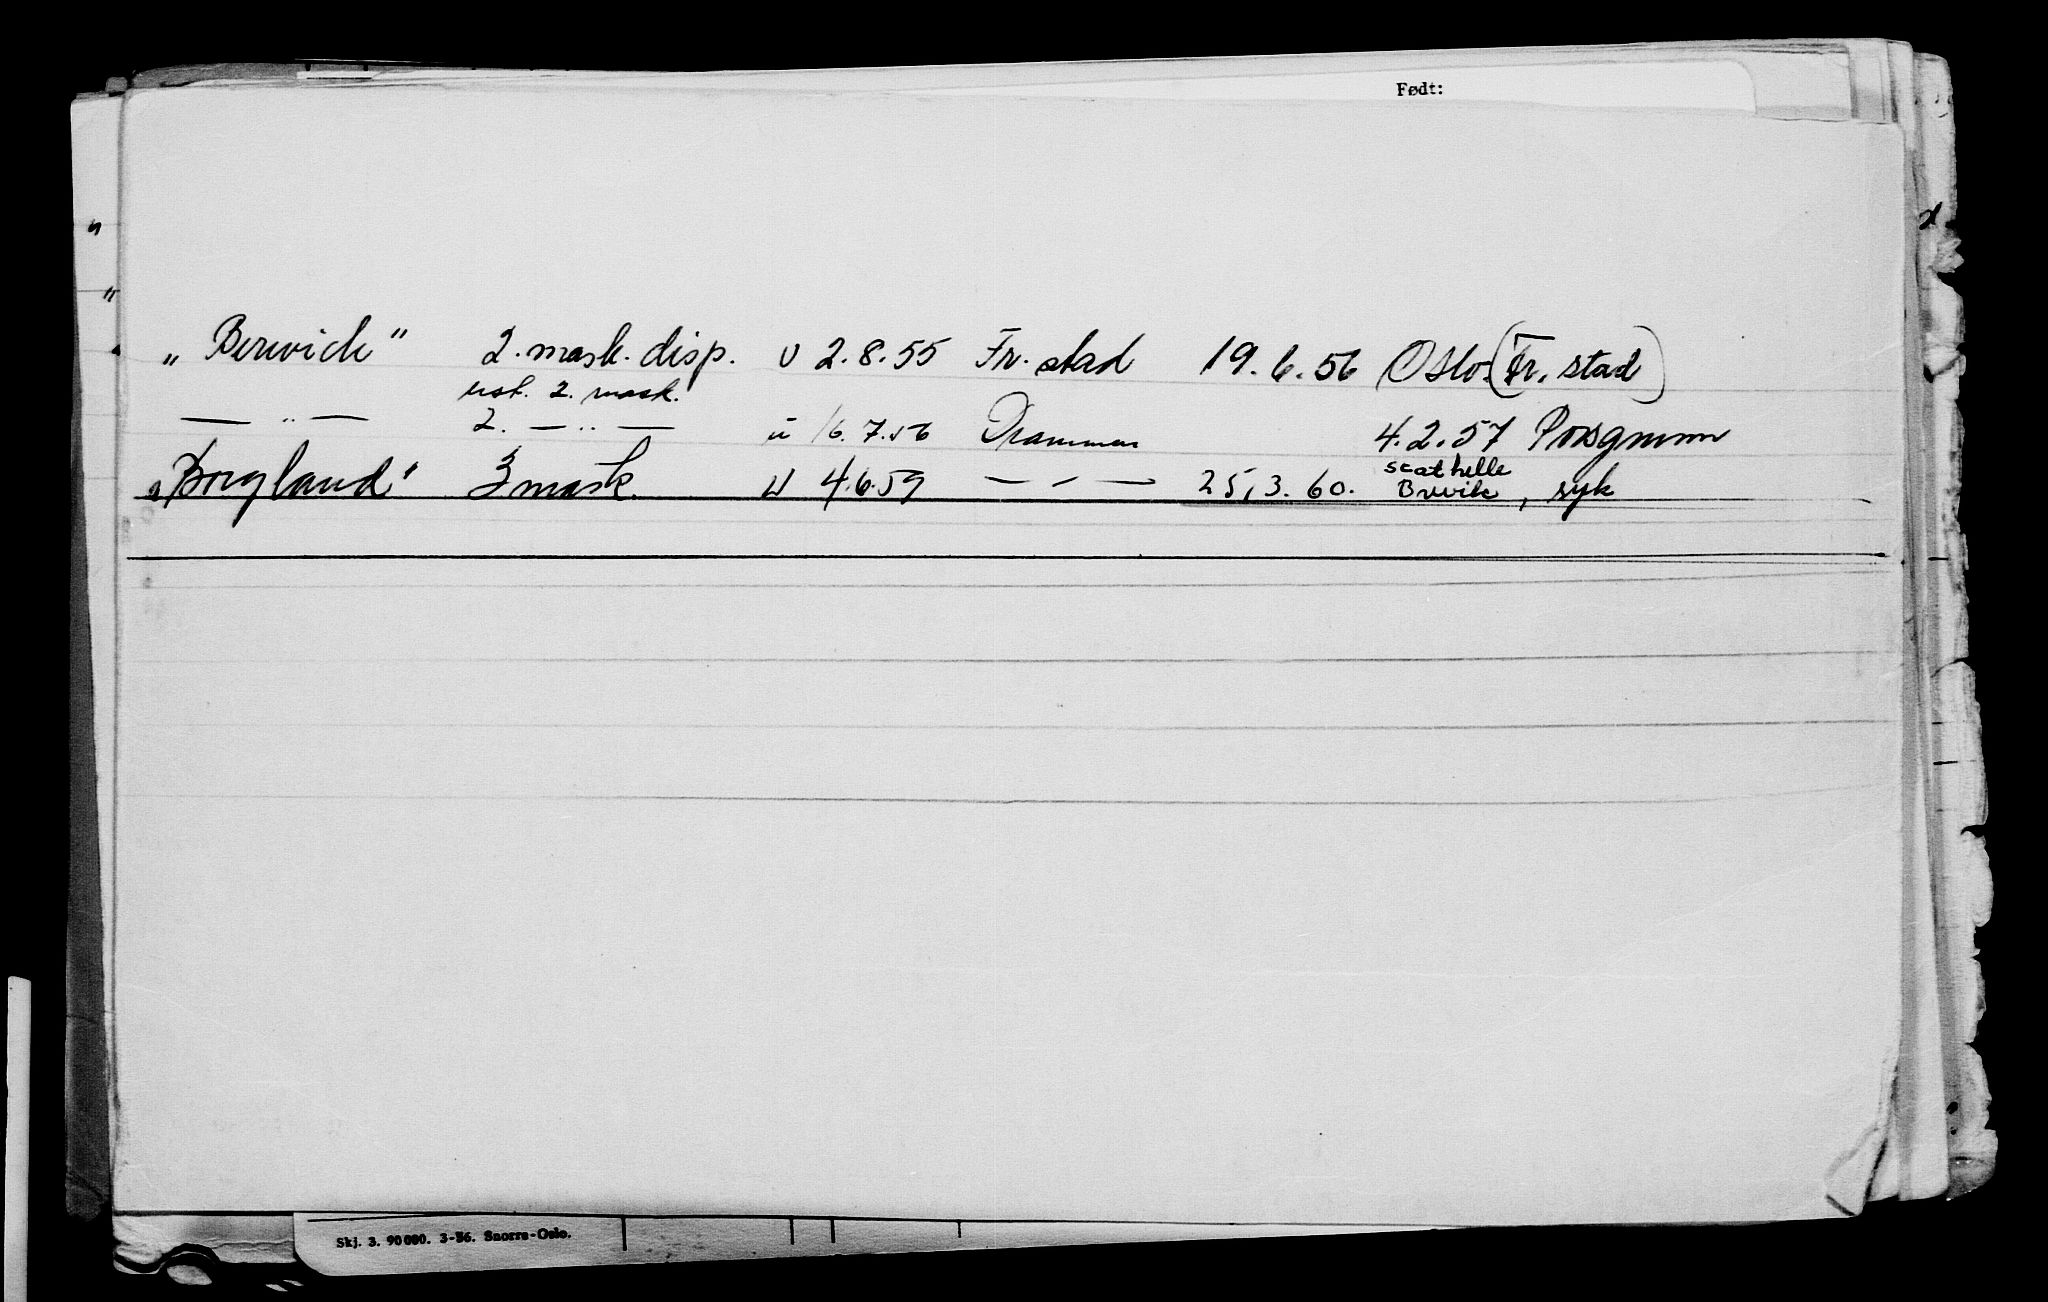 Født:
„Berwick" 2. mask. disp. u 2.8.55 Fr.stad 19.6.56 Oslo. (Fr.stad)
ust. 2. mask.
— " — 2. — " — u 16.7.56 Drammen 4.2.57 Porsgrunn
„Borgland" 3 mask. u 4.6.59 — " — 25.3.60. Stathelle
Brevik, syk
Skj. 3. 90 000. 3-56. Snorre-Oslo.